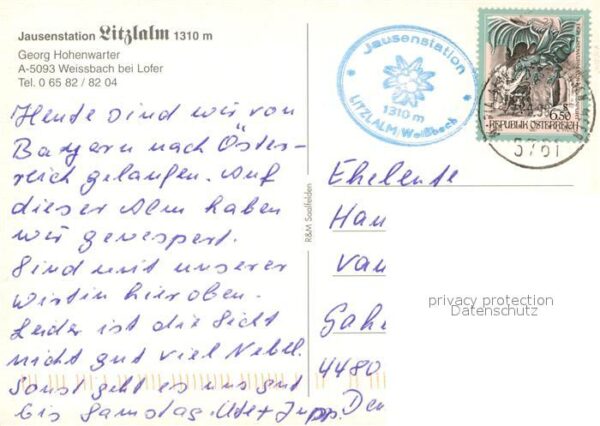 Jausenstation Litzlalm 1310 m
Georg Hohenwarter
A-5093 Weissbach bei Lofer
Tel. 0 65 82 / 82 04
Jausenstation
1310 m
LITZLALM/Weißbach
6.50
REPUBLIK ÖSTERREICH
5761
Heute sind wir von
Bayern nach Öster-
reich gelaufen. Auf
dieser Alm haben
wir gevespert.
Sind mit unserer
Wirtin hier oben.
Leider ist die Sicht
nicht gut viel Nebel.
Sonst geht es uns gut
bis Samstag. Ute + Jupp.
R&M Saalfelden
Eheleute
Han
van
Gah
4480
Den
privacy protection
Datenschutz